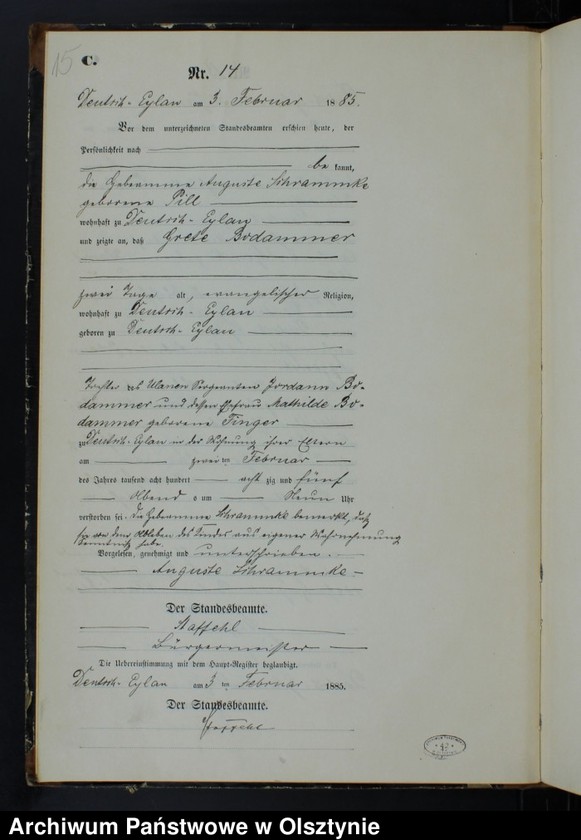 15
C.
Nr. 14
Deutsch-Eylau am 3. Februar 1885.
Vor dem unterzeichneten Standesbeamten erschien heute, der
Persönlichkeit nach
be kannt,
die Hebeamme Auguste Schrammke
geborene Pill
wohnhaft zu Deutsch-Eylau
und zeigte an, daß Grete Bodammer
zwei Tage alt, evangelischer Religion,
wohnhaft zu Deutsch-Eylau
geboren zu Deutsch-Eylau
Tochter des Ulanen Sergeanten Jordann Bo-
dammer und dessen Ehefrau Mathilde Bo-
dammer geborene Finger
zu Deutsch-Eylau in der Wohnung ihrer Eltern
am zwei ten Februar
des Jahres tausend acht hundert acht zig und fünf
Abend s um Neun Uhr
verstorben sei. Die Hebeamme Schrammke bemerkt, daß
sie von dem Ableben des Kindes aus eigener Wahrnehmung
Kenntniß habe.
Vorgelesen, genehmigt und unterschrieben.
Auguste Schrammke
Der Standesbeamte.
Staffehl
Bürgermeister
Die Uebereinstimmung mit dem Haupt-Register beglaubigt.
Deutsch-Eylau am 3 ten Februar 1885.
Der Standesbeamte.
Staffehl
Archiwum Państwowe w Olsztynie